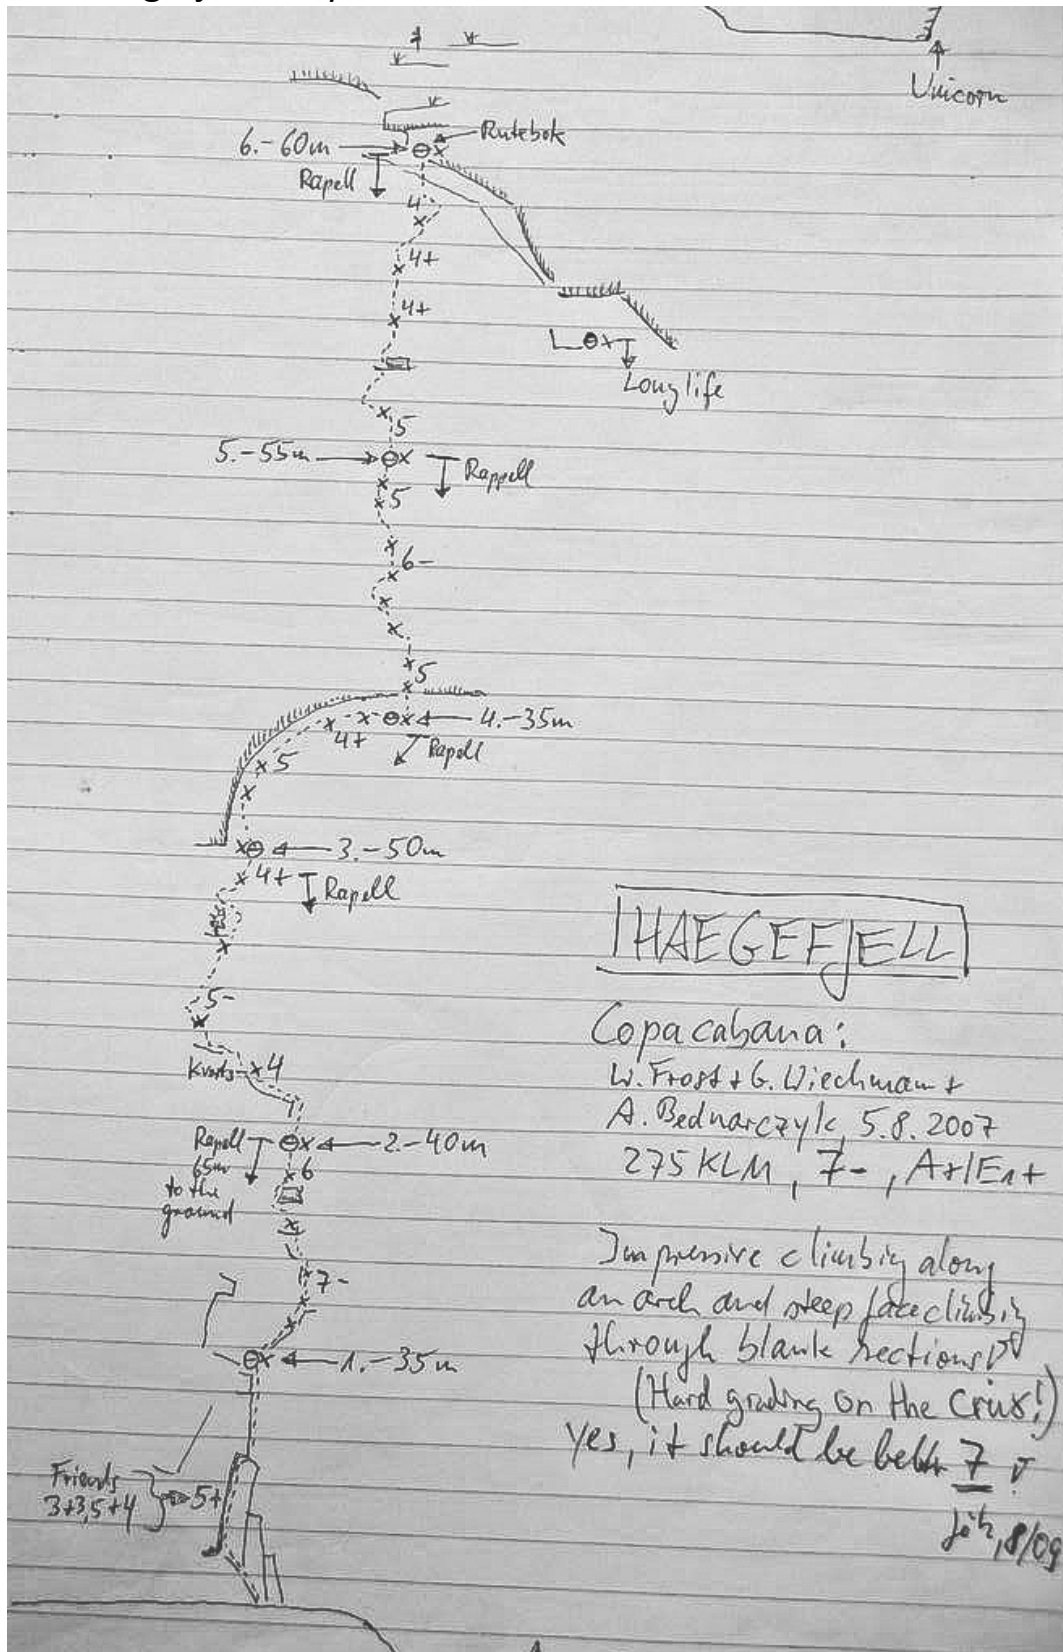 Unicorn
Rutebok
6.-60m
Rapell
4
4+
4+
Long life
5
5.-55m
Rappell
5
6-
5
4.-35m
4+
Rapell
5
3.-50m
4+
Rapell
5-
Kvarts
4
Rapell
65m
to the
ground
2.-40m
6
7-
1.-35m
Friends
3+3,5+4
5+
HAEGEFJELL
Copacabana:
W. Frost + G. Wiechmann +
A. Bednarczyk, 5.8.2007
275 KLM, 7-, A+/E1+
Impressive climbing along
an arch and steep faceclimbing
through blank sections
(Hard grading on the Crux!)
Yes, it should be 7
8/09